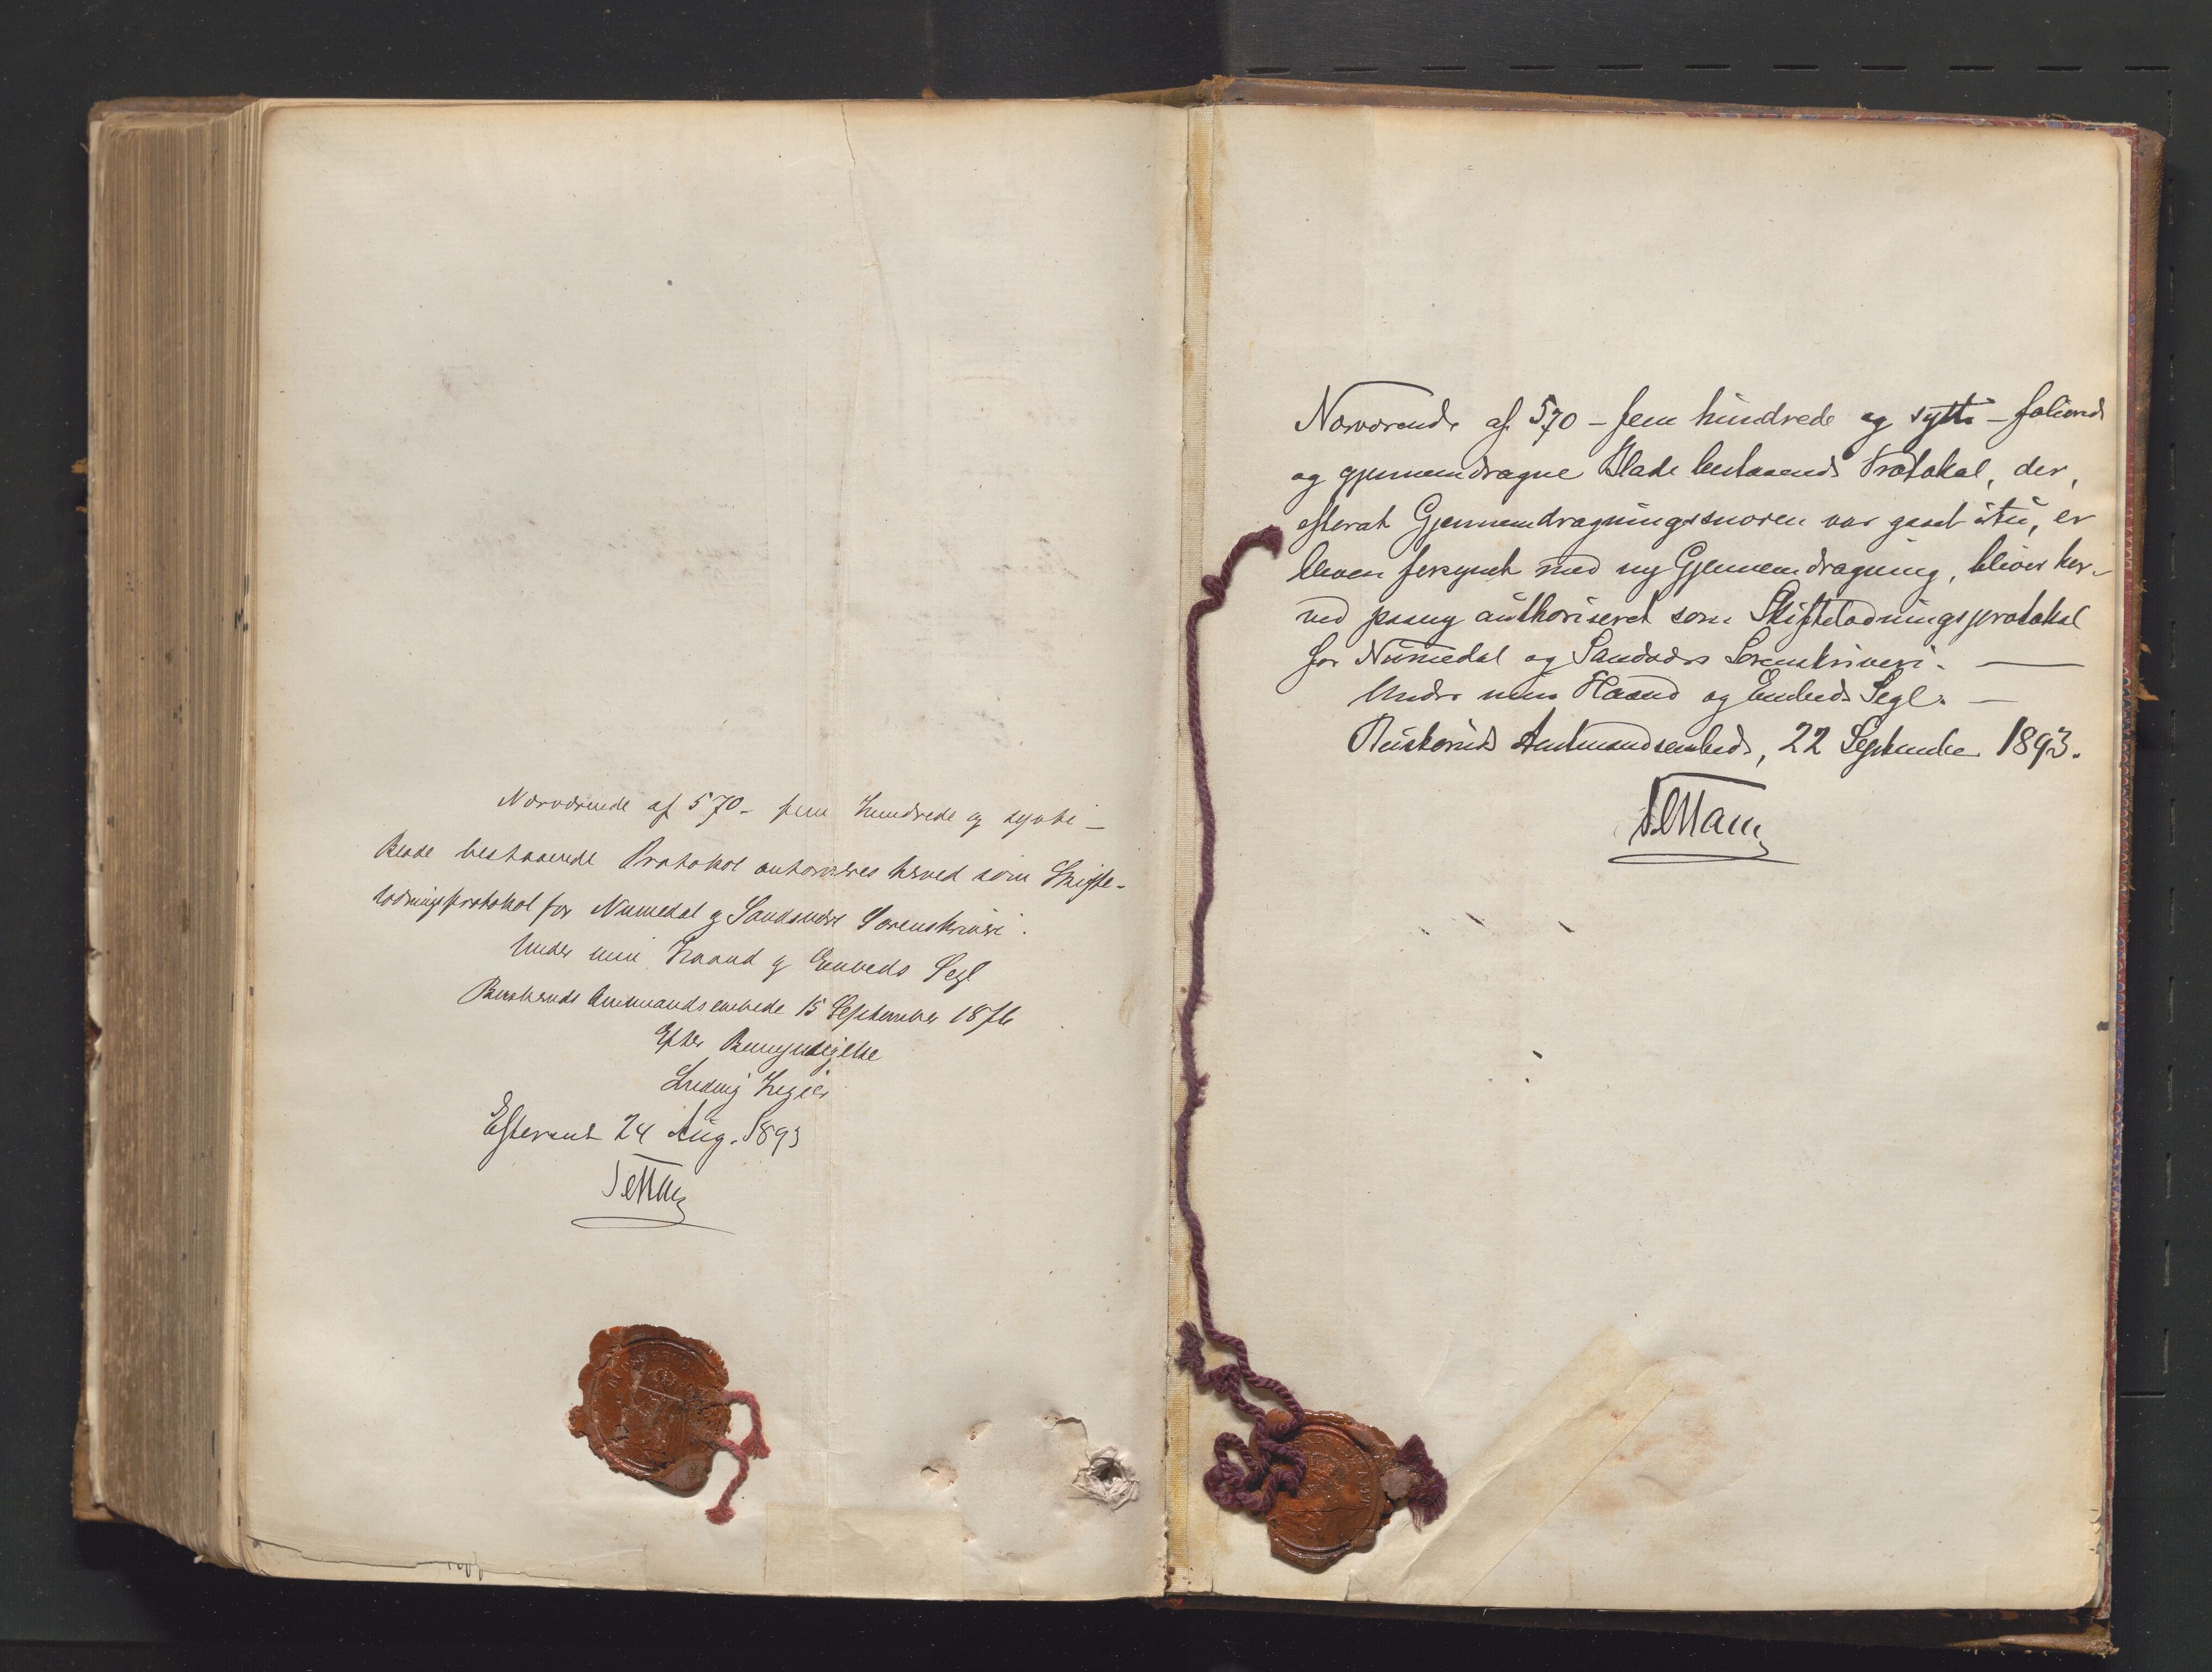 Nærværende af 570 - fem hundrede og sytti -
Blade bestaaende Protokol autoriseres herved som Skifte-
lodningsprotokol for Numedal og Sandsværs Sorenskriveri.
Under min Haand og Embeds Segl
Buskeruds Amtmandsembede 15 September 1876
Efter Bemyndigelse
Ludvig
Efterseet 24 Aug. 1893
Nærværende af 570 - fem hundrede og sytti - folierede
og gjennemdragne Blade bestaaende Protokol, der,
efterat Gjennemdragningssnoren var gaaet itu, er
bleven forsynet med ny Gjennemdragning, bliver her-
ved paany authoriseret som Skiftelodningsprotokol
for Numedal og Sandsværs Sorenskriveri. —
Under min Haand og Embeds Segl. —
Buskeruds Amtmandsembede, 22 September 1893.